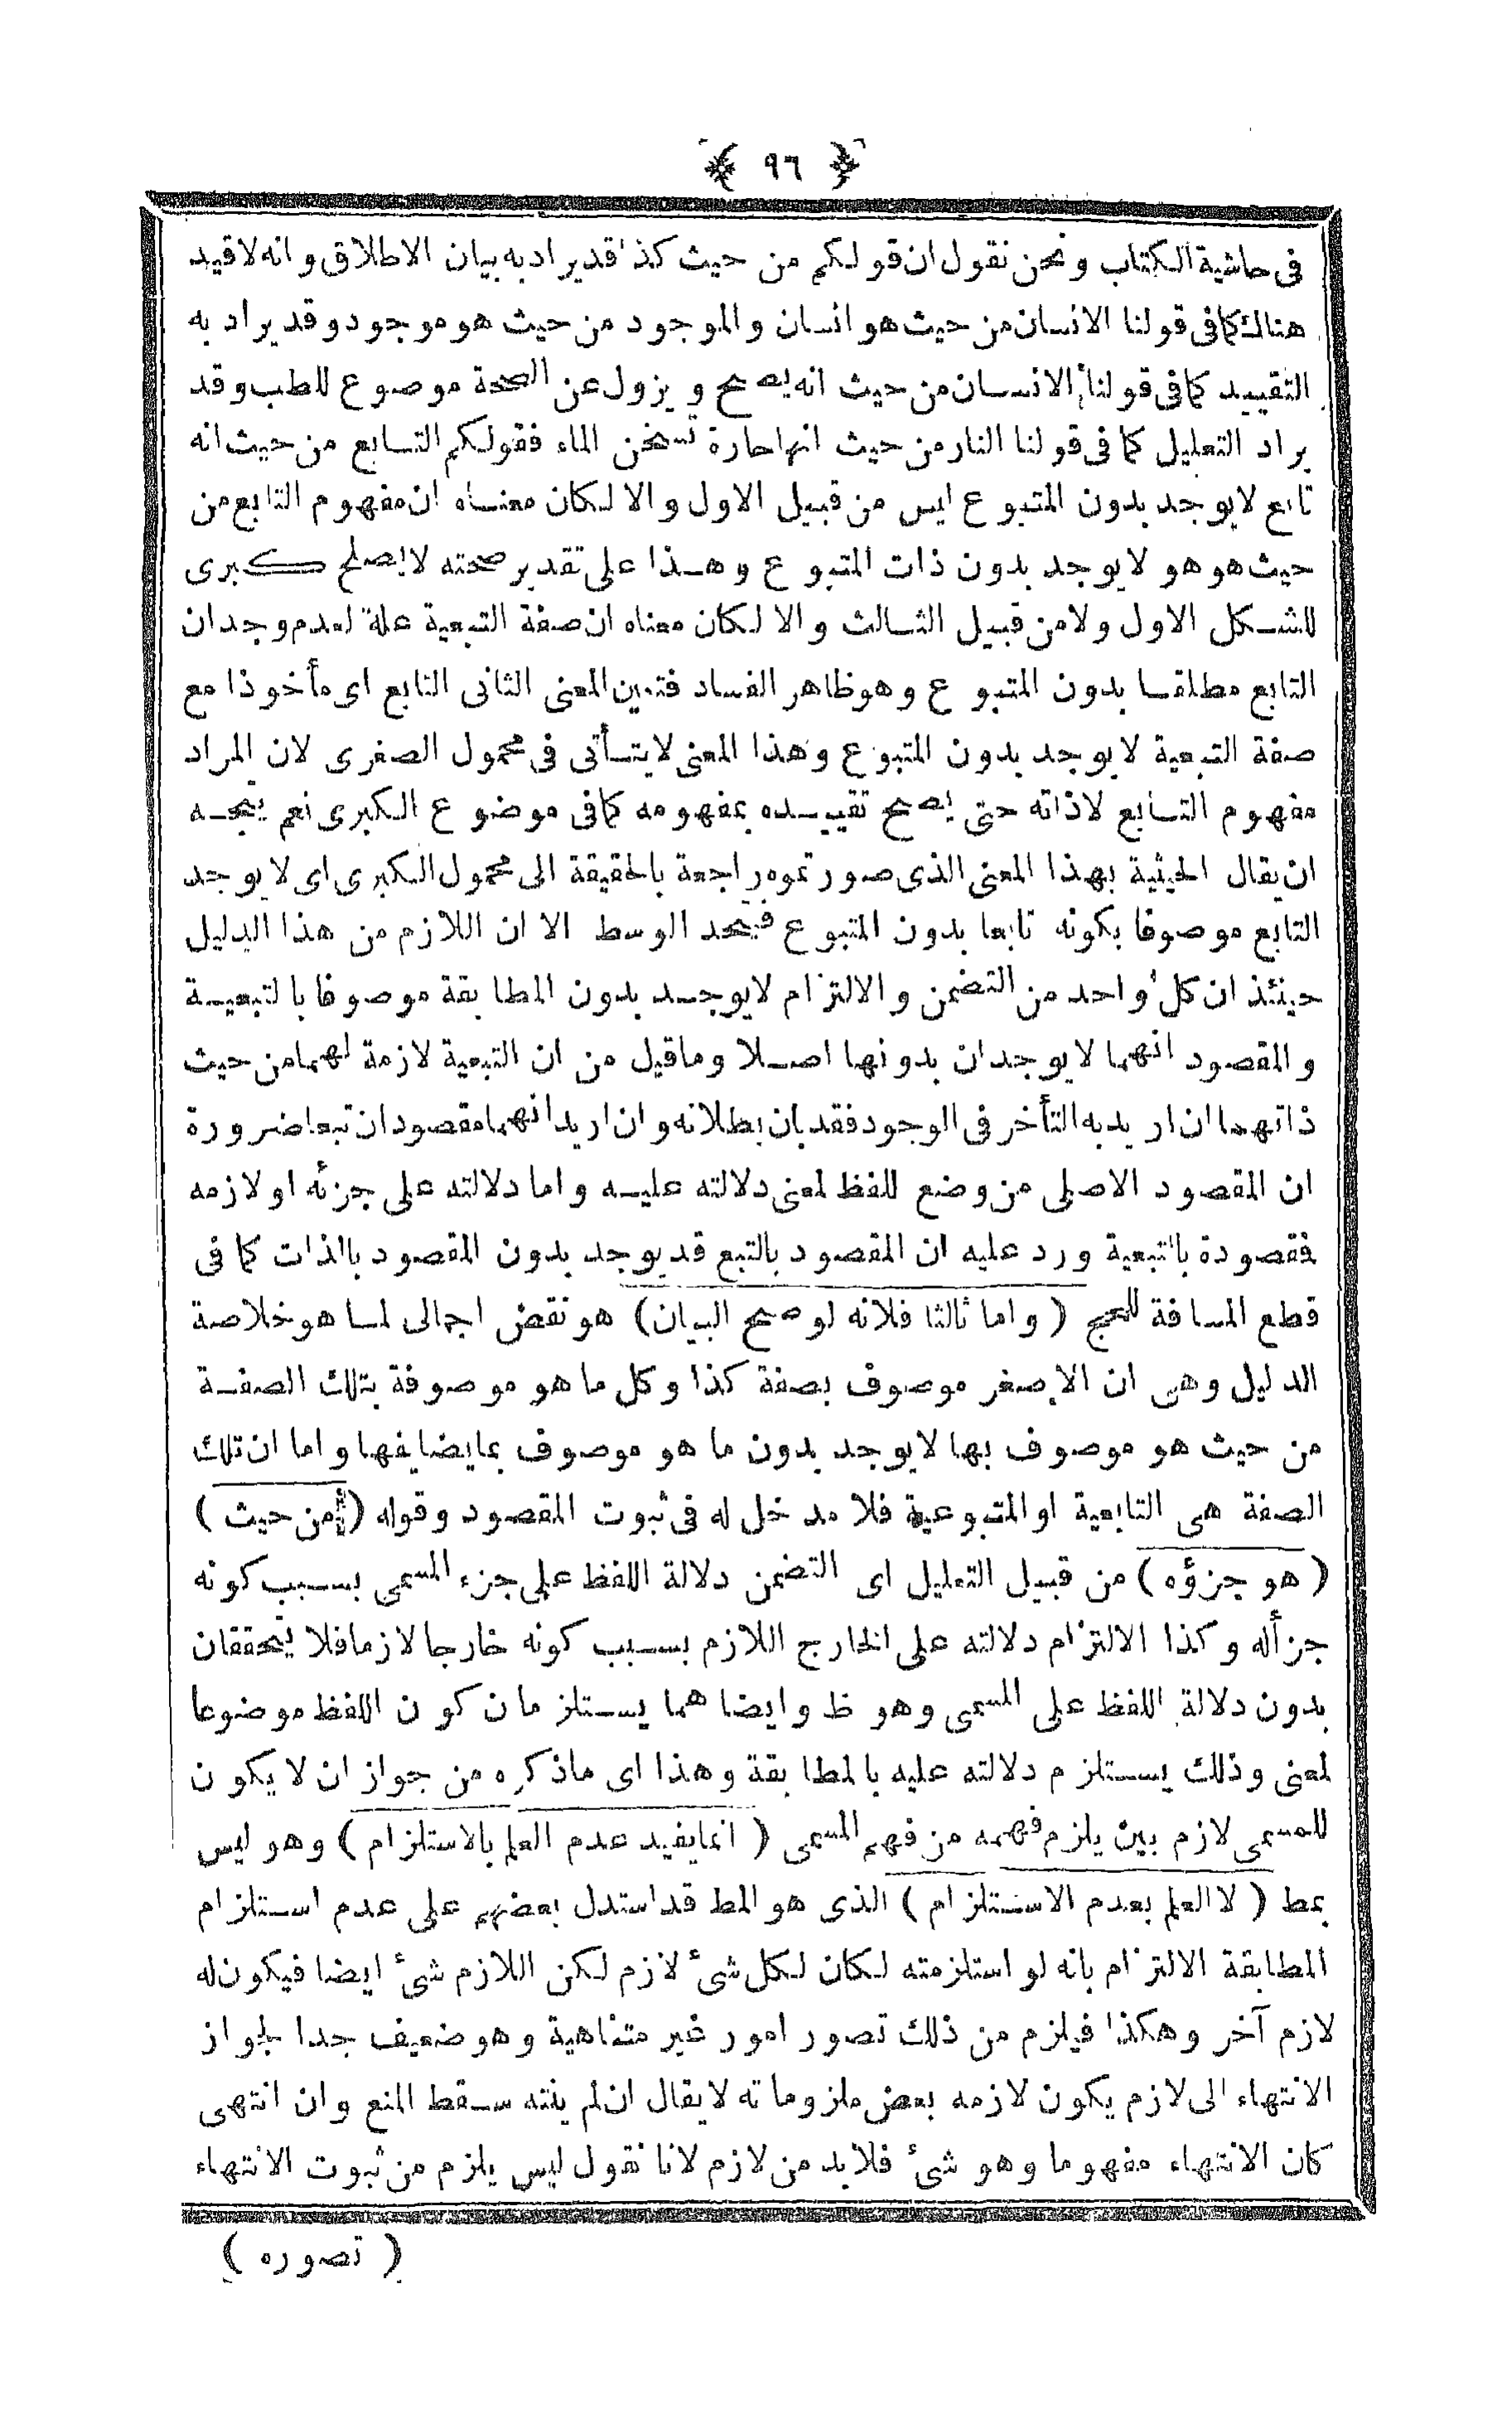 ﴿ ٩٦ ﴾
فى حاشية الكتاب ونحن نقول ان قولكم من حيث كذا قد يراد به بيان الاطلاق وانه لا قيد
هناك كما فى قولنا الانسان من حيث هو انسان والموجود من حيث هو موجود وقد يراد به
التقييد كما فى قولنا الانسان من حيث انه يصح ويزول عن الصحة موضوع للطب وقد
يراد التعليل كما فى قولنا النار من حيث انها حارة تسخن الماء فقولكم التابع من حيث انه
تابع لايوجد بدون المتبوع ليس من قبيل الاول والا لكان معناه ان مفهوم التابع من
حيث هو هو لايوجد بدون ذات المتبوع وهذا على تقدير صحته لايصلح كبرى
للشكل الاول ولا من قبيل الثالث والا لكان معناه ان صفة التبعية علة لعدم وجدان
التابع مطلقا بدون المتبوع وهو ظاهر الفساد فتعين المعنى الثانى التابع اى مأخوذا مع
صفة التبعية لايوجد بدون المتبوع وهذا المعنى لايتأتى فى محمول الصغرى لان المراد
مفهوم التابع لاذاته حتى يصح تقييده بمفهومه كما فى موضوع الكبرى نعم يتجه
ان يقال الحيثية بهذا المعنى الذى صورتموه راجعة بالحقيقة الى محمول الكبرى اى لايوجد
التابع موصوفا بكونه تابعا بدون المتبوع فيتحد الوسط الا ان اللازم من هذا الدليل
حينئذ ان كل واحد من التضمن والالتزام لايوجد بدون المطابقة موصوفا بالتبعية
والمقصود انهما لايوجدان بدونها اصلا وماقيل من ان التبعية لازمة لهما من حيث
ذاتهما ان اريد به التأخر فى الوجود فقد بان بطلانه وان اريد انهما مقصودان تبعا ضرورة
ان المقصود الاصلى من وضع للفظ لمعنى دلالته عليه واما دلالته على جزئه اولازمه
فمقصودة بالتبعية ورد عليه ان المقصود بالتبع قد يوجد بدون المقصود بالذات كما فى
قطع المسافة للحج ( واما ثالثا فلانه لو صح البيان ) هو نقض اجمالى لما هو خلاصة
الدليل وهى ان الاصغر موصوف بصفة كذا وكل ما هو موصوفة بتلك الصفة
من حيث هو موصوف بها لايوجد بدون ما هو موصوف بمايضايفها واما ان تلك
الصفة هى التابعية او المتبوعية فلا مدخل له فى ثبوت المقصود وقوله ( من حيث )
( هو جزؤه ) من قبيل التعليل اى التضمن دلالة اللفظ على جزء المسمى بسبب كونه
جزأله وكذا الالتزام دلالته على الخارج اللازم بسبب كونه خارجا لازما فلا يتحققان
بدون دلالة اللفظ على المسمى وهو ظ وايضا هما يستلزمان كون اللفظ موضوعا
لمعنى وذلك يستلزم دلالته عليه بالمطابقة وهذا اى ماذكره من جواز ان لايكون
للمسمى لازم بين يلزم فهمه من فهم المسمى ( انمايفيد عدم العلم بالاستلزام ) وهو ليس
بمط ( لا العلم بعدم الاستلزام ) الذى هو المط قد استدل بعضهم على عدم استلزام
المطابقة الالتزام بانه لو استلزمته لكان لكل شئ لازم لكن اللازم شئ ايضا فيكون له
لازم آخر وهكذا فيلزم من ذلك تصور امور غير متناهية وهو ضعيف جدا لجواز
الانتهاء الى لازم يكون لازمه بعض ملزوماته لايقال ان لم ينته سقط المنع وان انتهى
كان الانتهاء مفهوما وهو شئ فلابد من لازم لانا نقول ليس يلزم من ثبوت الانتهاء
( تصوره )